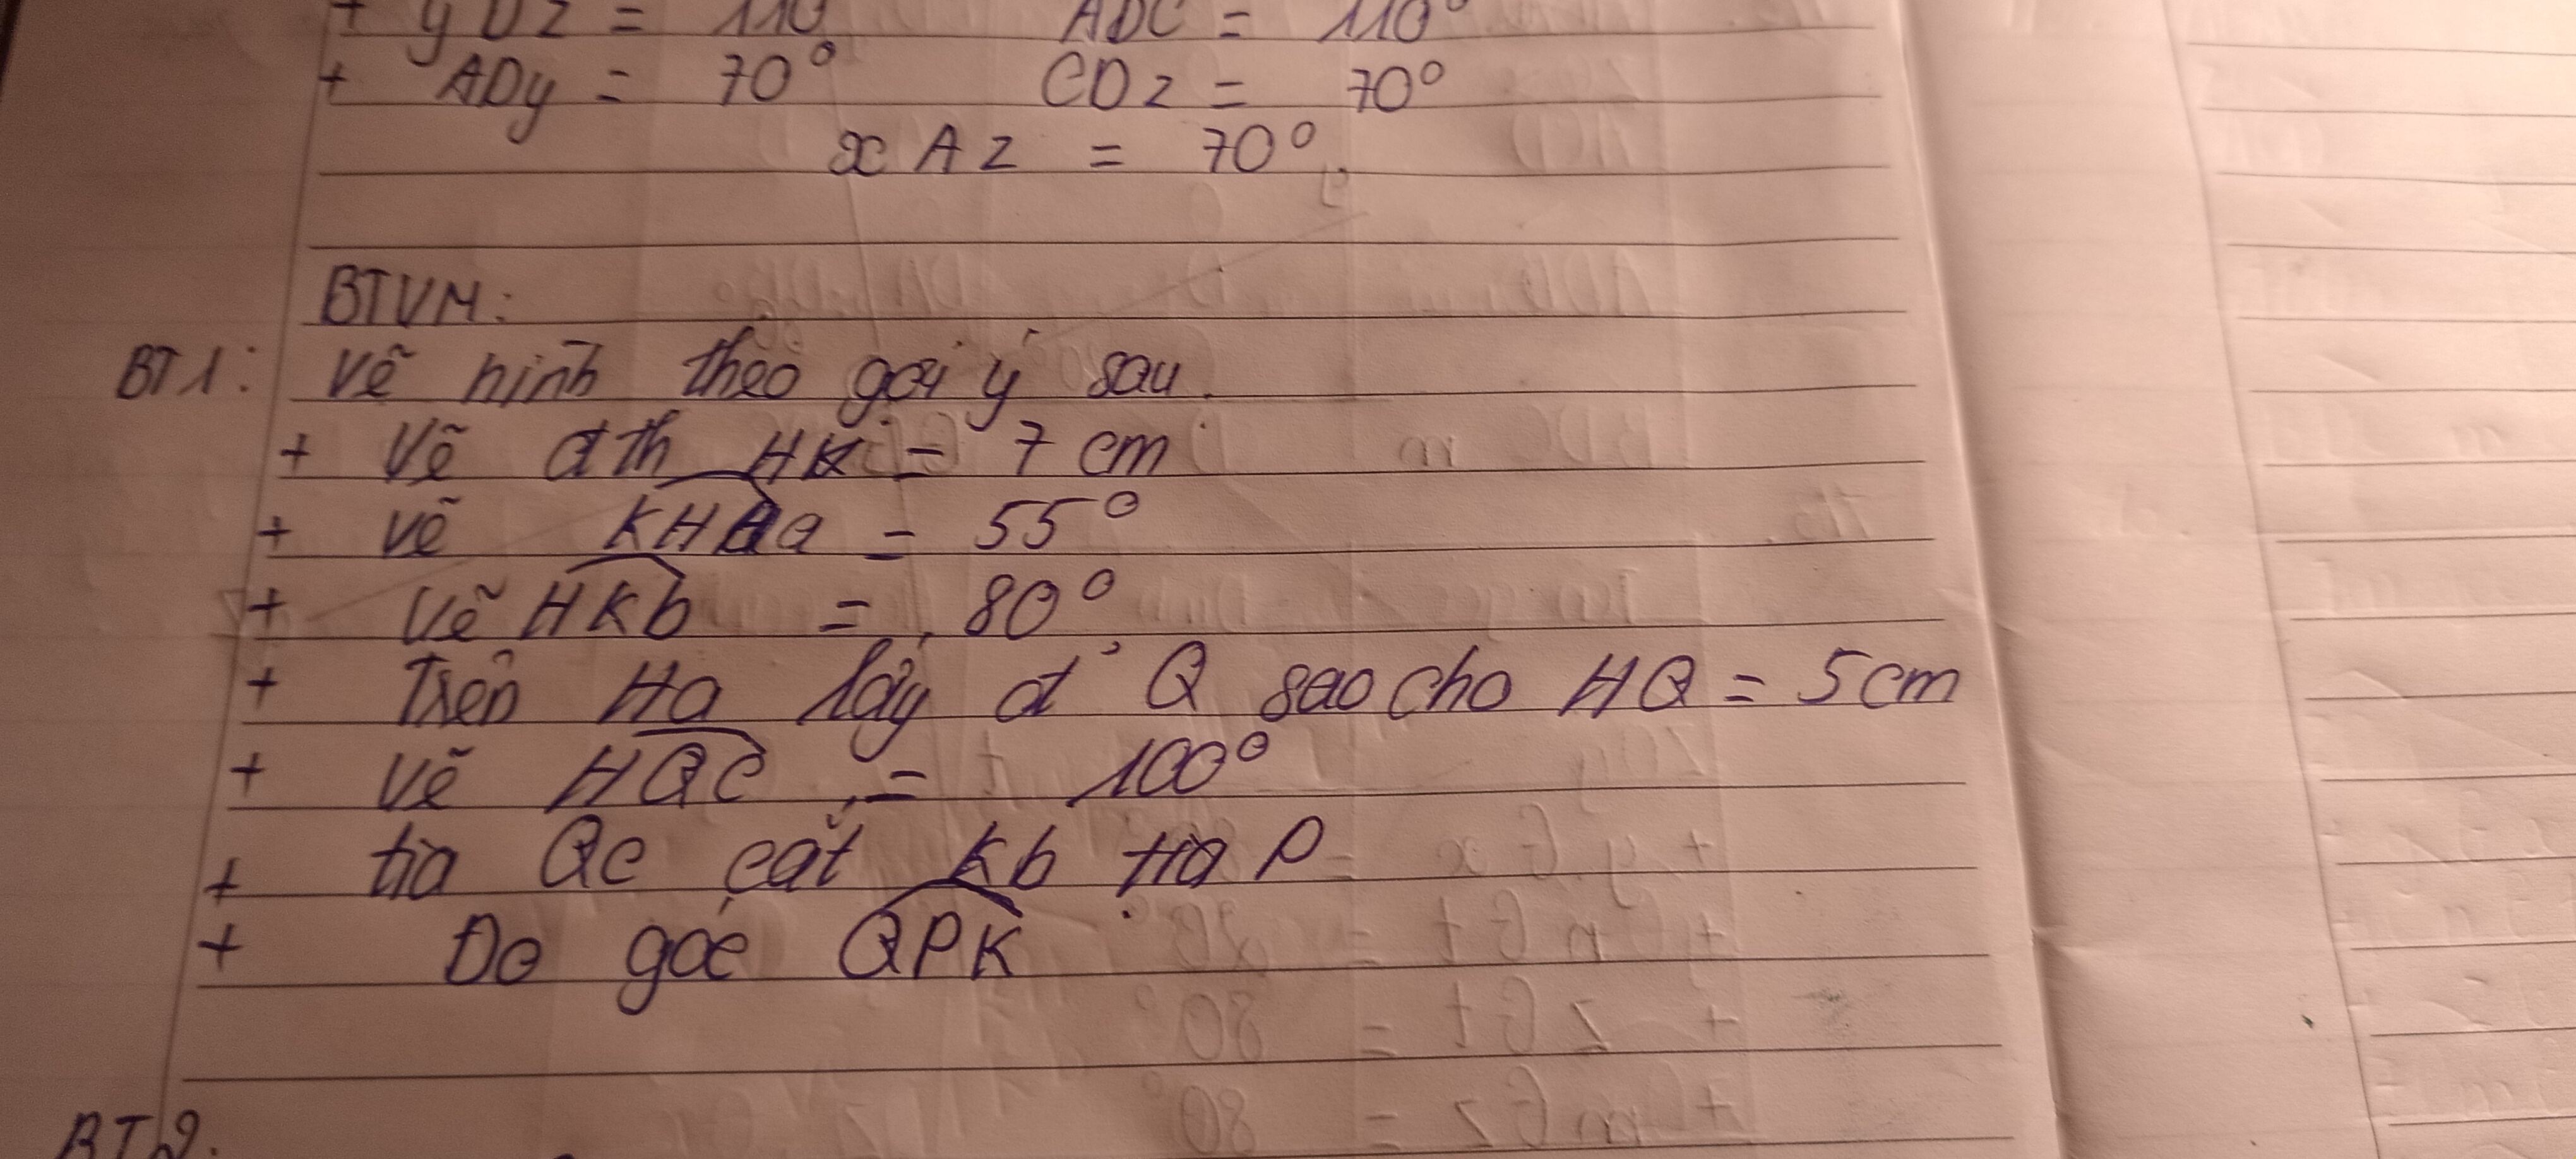 + yDz = 110 ADC = 110°
+ ADy = 70° CDz = 70°
xAz = 70°
BTVN:
BT1: Vẽ hình theo gợi ý sau.
+ Vẽ đth HK = 7 cm
+ Vẽ KHa = 55°
+ Vẽ HKb = 80°
+ Trên Ha lấy đ' Q sao cho HQ = 5cm
+ Vẽ HQC = 100°
+ tia Qc cắt Kb tại P
+ Đo góc QPK
BT2.